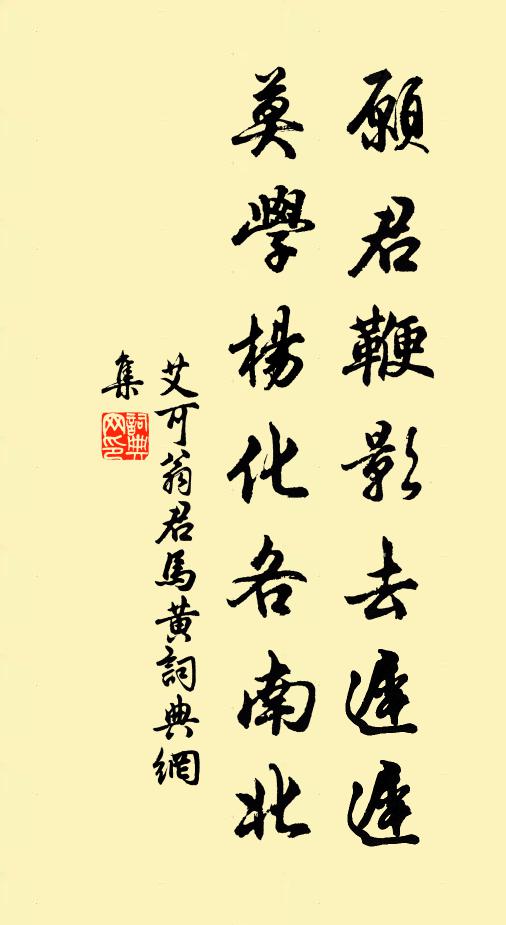 願君鞭影去遲遲
莫學楊化各南北
艾可翁君馬黃詞典網
集
詞典
网印